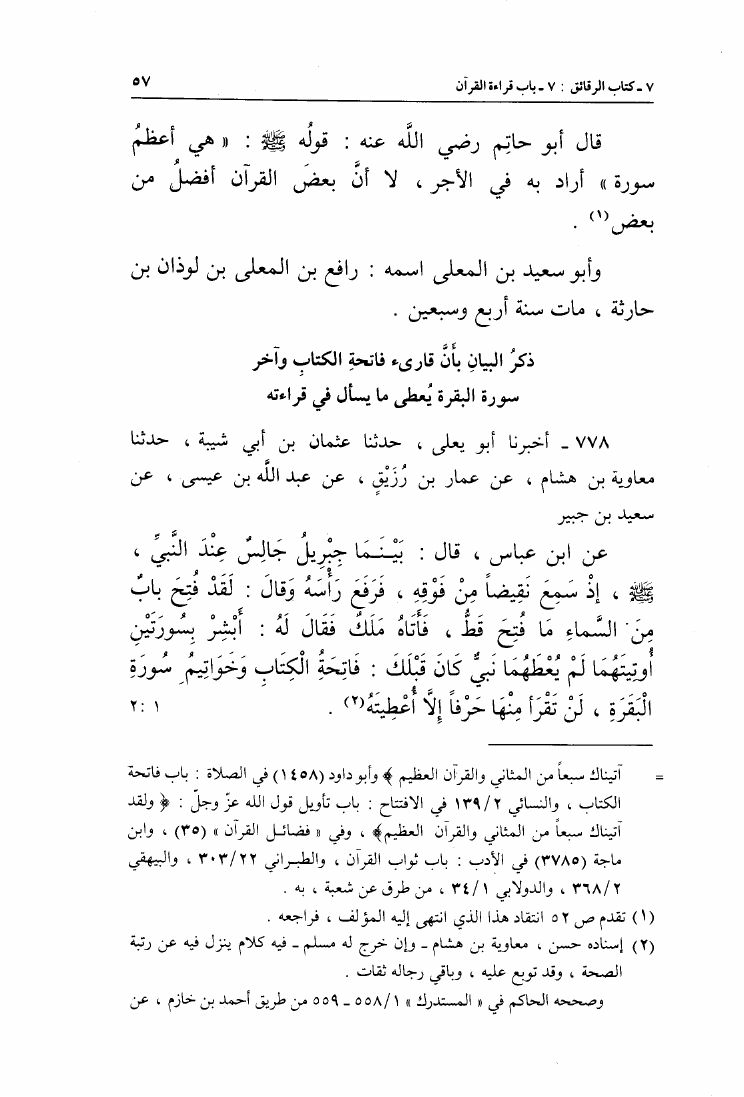 ٧ ـ كتاب الرقائق : ٧ ـ باب قراءة القرآن ٥٧
قال أبو حاتِم رضي اللَّه عنه : قولُه ﷺ : « هي أعظمُ
سورة » أراد به في الأجر ، لا أنَّ بعضَ القرآن أفضلُ من
بعض(١) .
وأبو سعيد بن المعلى اسمه : رافع بن المعلى بن لوذان بن
حارثة ، مات سنة أربع وسبعين .
ذكرُ البيانِ بأَنَّ قارىء فاتحةِ الكتابِ وآخر
سورة البقرة يُعطى ما يسأل في قراءته
٧٧٨ ـ أخبرنا أبو يعلى ، حدثنا عثمان بن أبي شيبة ، حدثنا
معاوية بن هشام ، عن عمار بن رُزَيْقٍ ، عن عبد اللَّه بن عيسى ، عن
سعيد بن جبير
عن ابن عباس ، قال : بَيْنَمَا جِبْرِيلُ جَالِسٌ عِنْدَ النَّبِيِّ ،
ﷺ ، إِذْ سَمِعَ نَقِيضاً مِنْ فَوْقِهِ ، فَرَفَعَ رَأْسَهُ وَقَالَ : لَقَدْ فُتِحَ بابٌ
مِنَ السَّماءِ مَا فُتِحَ قَطُّ ، فَأَتَاهُ مَلَكٌ فَقَالَ لَهُ : أَبْشِرْ بِسُورَتَيْنِ
أُوتِيتَهُمَا لَمْ يُعْطَهُمَا نَبِيٌّ كَانَ قَبْلَكَ : فَاتِحَةُ الْكِتَابِ وَخَوَاتِيمُ سُورَةِ
الْبَقَرَةِ ، لَنْ تَقْرَأَ مِنْهَا حَرْفاً إِلَّا أُعْطِيتَهُ(٢) . ١ :٢
= آتيناك سبعاً من المثاني والقرآن العظيم ﴾ وأبو داود (١٤٥٨) في الصلاة : باب فاتحة
الكتاب ، والنسائي ١٣٩/٢ في الافتتاح : باب تأويل قول الله عزّ وجلّ : ﴿ ولقد
آتيناك سبعاً من المثاني والقرآن العظيم﴾ ، وفي « فضائل القرآن » (٣٥) ، وابن
ماجة (٣٧٨٥) في الأدب : باب ثواب القرآن ، والطبراني ٣٠٣/٢٢ ، والبيهقي
٣٦٨/٢ ، والدولابي ٣٤/١ ، من طرق عن شعبة ، به .
(١) تقدم ص ٥٢ انتقاد هذا الذي انتهى إليه المؤلف ، فراجعه .
(٢) إسناده حسن ، معاوية بن هشام ـ وإن خرج له مسلم ـ فيه كلام ينزل فيه عن رتبة
الصحة ، وقد توبع عليه ، وباقي رجاله ثقات .
وصححه الحاكم في « المستدرك » ٥٥٨/١ ـ ٥٥٩ من طريق أحمد بن خازم ، عن